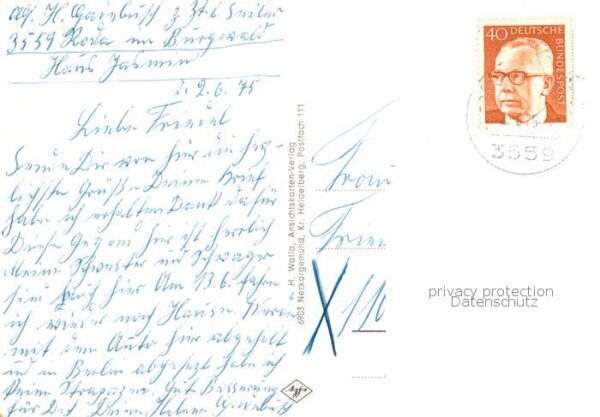 Abs. H. Gawlitsch z Zt. b. Seiler
3559 Roda im Burgwald
Haus Jasmin
d. 2.6.75
Liebe Friedel
Sende Dir von hier die herz-
lichsten Grüße. Deinen Brief
habe ich erhalten Dank dafür
Diese Gegend hier ist herrlich
Meine Schwester und Schwager
sind auch hier Am 13.6. fahren
ich wieder nach Hause. Werde
mit dem Auto hier abgeholt
und in Berlin abgesetzt habe ich
keine Strapazen. Gut Besserung
für Dich Deine Helene
H. Walla, Ansichtskarten-Verlag
6903 Neckargemünd, Kr. Heidelberg, Postfach 111
Frau
Frie
X 110
40 DEUTSCHE BUNDESPOST
3559
privacy protection
Datenschutz